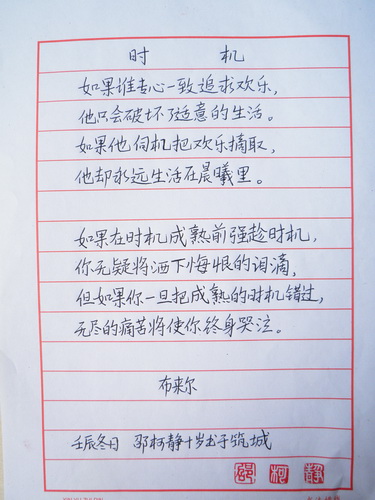 时 机
如果谁专心一致追求欢乐，
他只会破坏了适意的生活。
如果他伺机把欢乐摘取，
他却永远生活在晨曦里。
如果在时机成熟前强趁时机，
你无疑将洒下悔恨的泪滴，
但如果你一旦把成熟的时机错过，
无尽的痛苦将使你终身哭泣。
布来尔
壬辰冬日 邵柯静十岁书于筑城
邵 柯 静